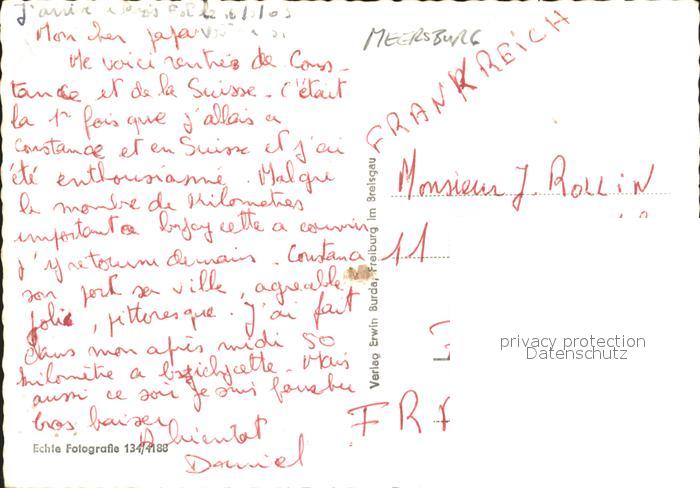 J'arrive
Mon cher papa
Me voici rentrée de Cons-
tance et de la Suisse. C'était
la 1re fois que j'allais a
Constance et en Suisse et j'ai
été enthousiasmé. Malgré
le nombre de kilometres
important a bycyclette a couvrir
j'y retourn demain. Constance
son port sa ville, agreable,
jolie, pittoresque. J'ai fait
dans mon après midi 50
kilomètre a bicyclette. Mais
aussi ce soir je suis
Gros baiser
A bientot
Daniel
Echte Fotografie 134/4188
Verlag Erwin Burda, Freiburg im Breisgau
MEERSBURG
FRANKREICH
Monsieur J. ROLLIN
11
FRA
privacy protection
Datenschutz